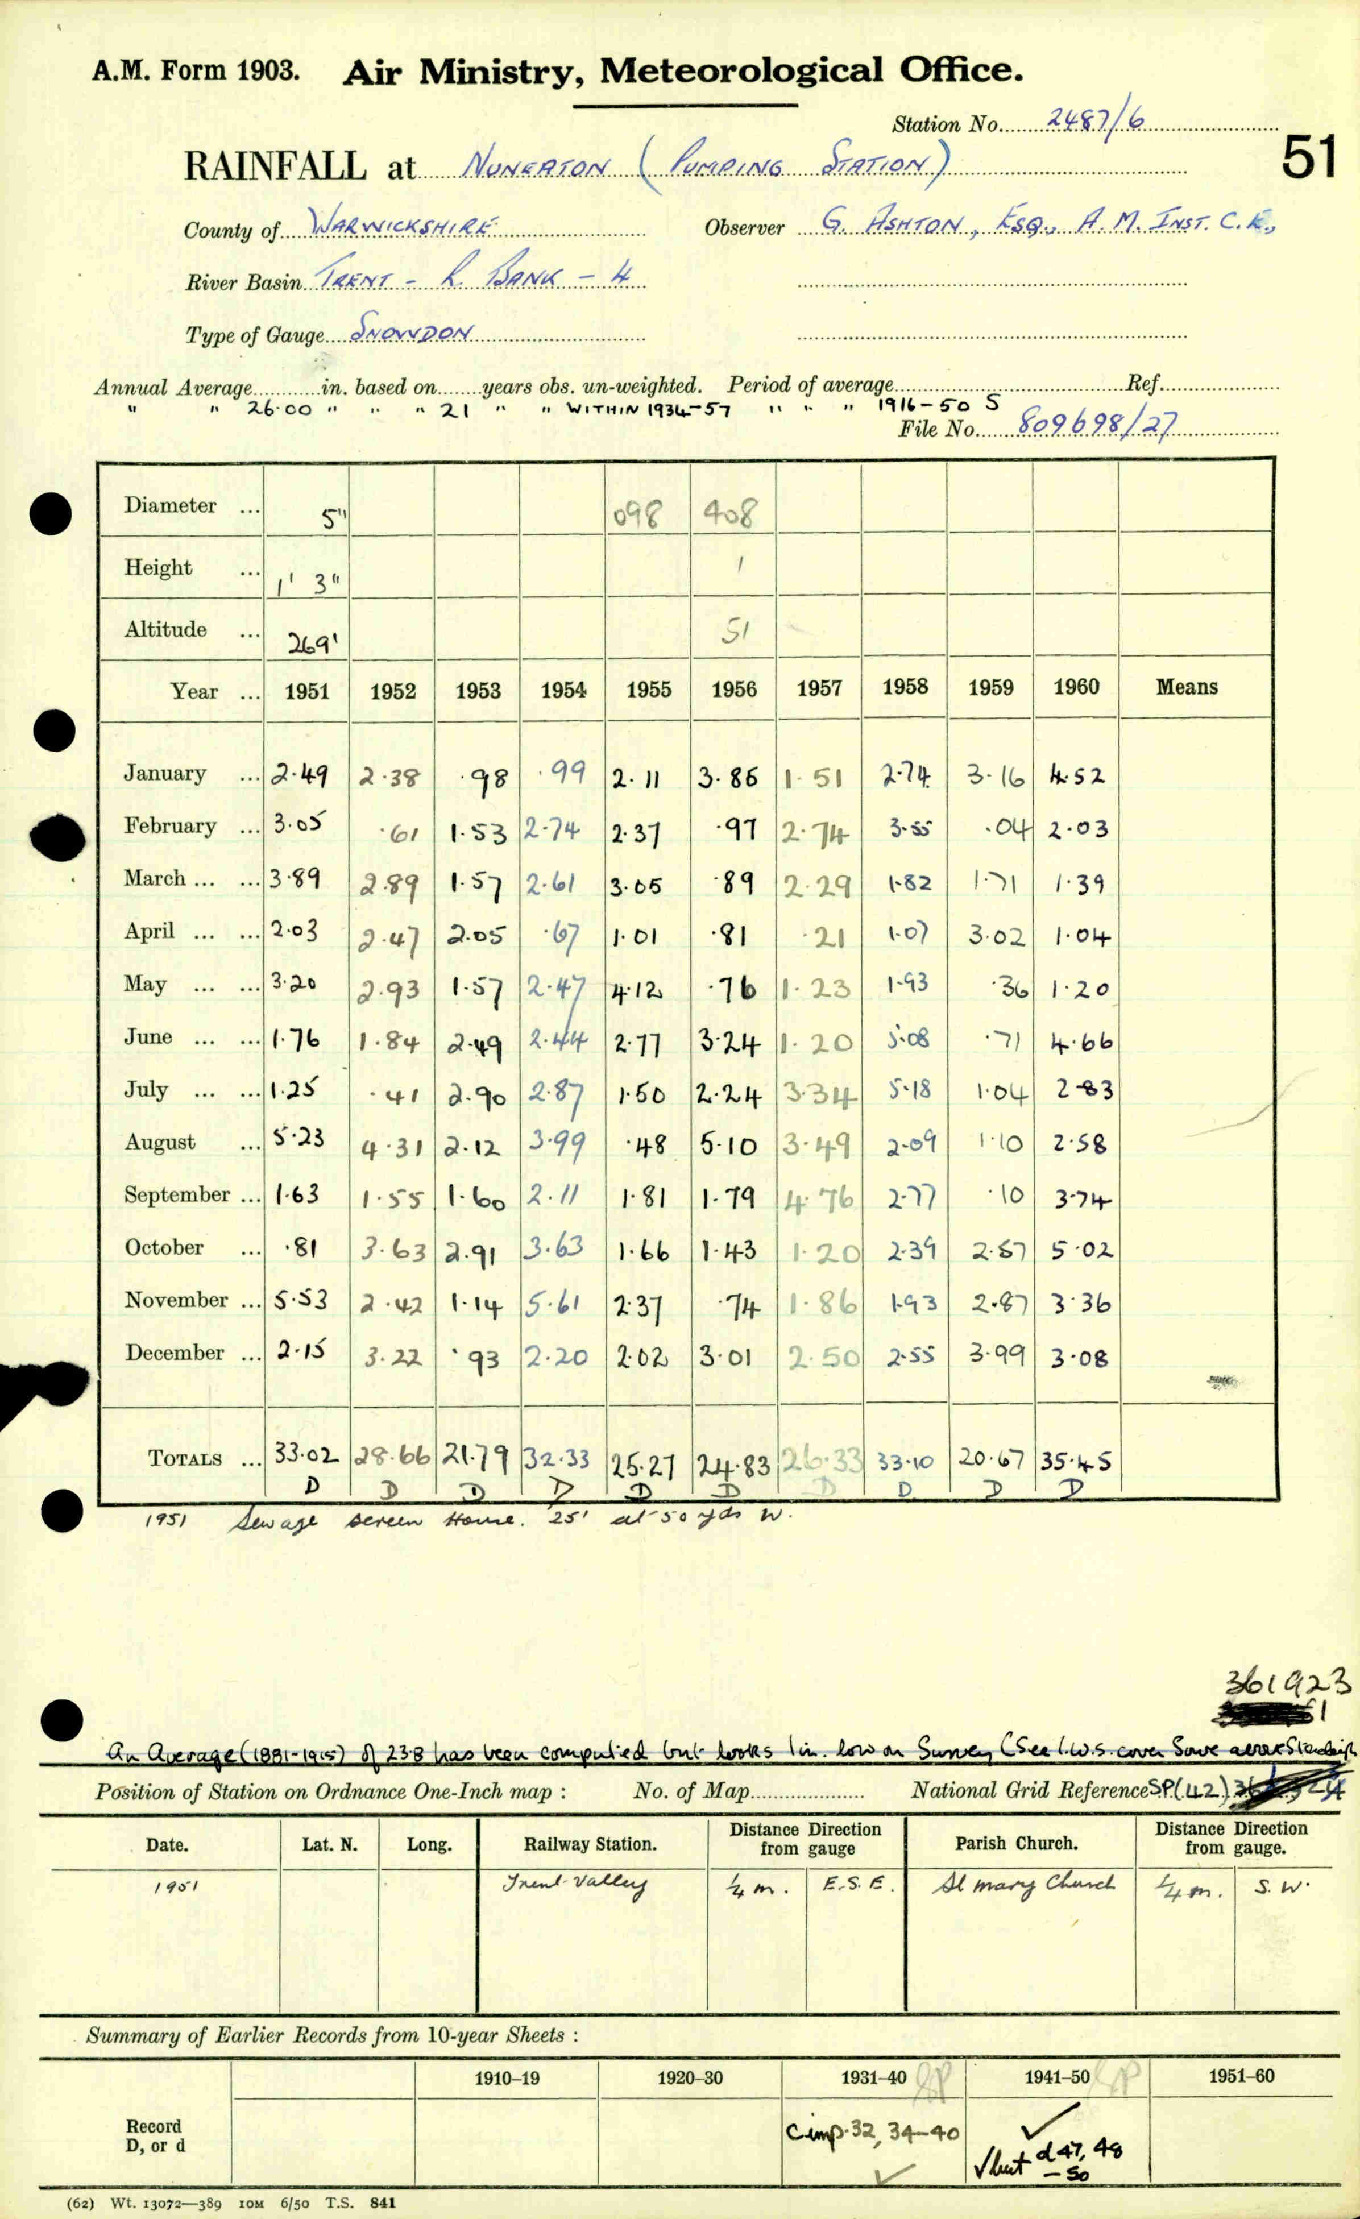 A.M. Form 1903. Air Ministry, Meteorological Office.
Station No. 2487/6
51
RAINFALL at NUNEATON (PUMPING STATION)
County of WARWICKSHIRE Observer G. ASHTON, ESQ., A.M. INST. C.E.,
River Basin TRENT - R. BANK - 4
Type of Gauge SNOWDON
Annual Average in. based on years obs. un-weighted. Period of average Ref.
" " 26.00 " " " 21 " " WITHIN 1934-57 " " " 1916-50 S
File No. 809698/27
Diameter ... 5" 098 408
Height ... 1' 3" 1
Altitude ... 269' 51
Year ... 1951 1952 1953 1954 1955 1956 1957 1958 1959 1960 Means
January ... 2.49 2.38 .98 .99 2.11 3.85 1.51 2.74 3.16 4.52
February ... 3.05 .61 1.53 2.74 2.37 .97 2.74 3.55 .04 2.03
March ... ... 3.89 2.89 1.57 2.61 3.05 .89 2.29 1.82 1.71 1.39
April ... ... 2.03 2.47 2.05 .67 1.01 .81 .21 1.07 3.02 1.04
May ... ... 3.20 2.93 1.57 2.47 4.12 .76 1.23 1.93 .36 1.20
June ... ... 1.76 1.84 2.49 2.44 2.77 3.24 1.20 5.08 .71 4.66
July ... ... 1.25 .41 2.90 2.87 1.50 2.24 3.34 5.18 1.04 2.83
August ... 5.23 4.31 2.12 3.99 .48 5.10 3.49 2.09 1.10 2.58
September ... 1.63 1.55 1.60 2.11 1.81 1.79 4.76 2.77 .10 3.74
October ... .81 3.63 2.91 3.63 1.66 1.43 1.20 2.39 2.57 5.02
November ... 5.53 2.42 1.14 5.61 2.37 .74 1.86 1.93 2.87 3.36
December ... 2.15 3.22 .93 2.20 2.02 3.01 2.50 2.55 3.99 3.08
TOTALS ... 33.02 28.66 21.79 32.33 25.27 24.83 26.33 33.10 20.67 35.45
D D D D D D D D D D
1951 Sewage screen House. 25' at 50 yds W.
361923
An Average (1881-1915) of 23.8 has been computed but looks 1 in. low on Survey (See I.W.S. cover Sowe
Position of Station on Ordnance One-Inch map : No. of Map National Grid Reference SP(42)
Date. Lat. N. Long. Railway Station. Distance from Direction gauge Parish Church. Distance from Direction gauge.
1951 Trent Valley 1/4 m. E.S.E. St Mary Church 1/4 m. S.W.
Summary of Earlier Records from 10-year Sheets :
1910–19 1920–30 1931–40 SP 1941–50 SP 1951–60
Record
D, or d
Comp. 32, 34-40 ✓
✓
✓ but d 47, 48
-50
(62) Wt. 13072—389 10M 6/50 T.S. 841